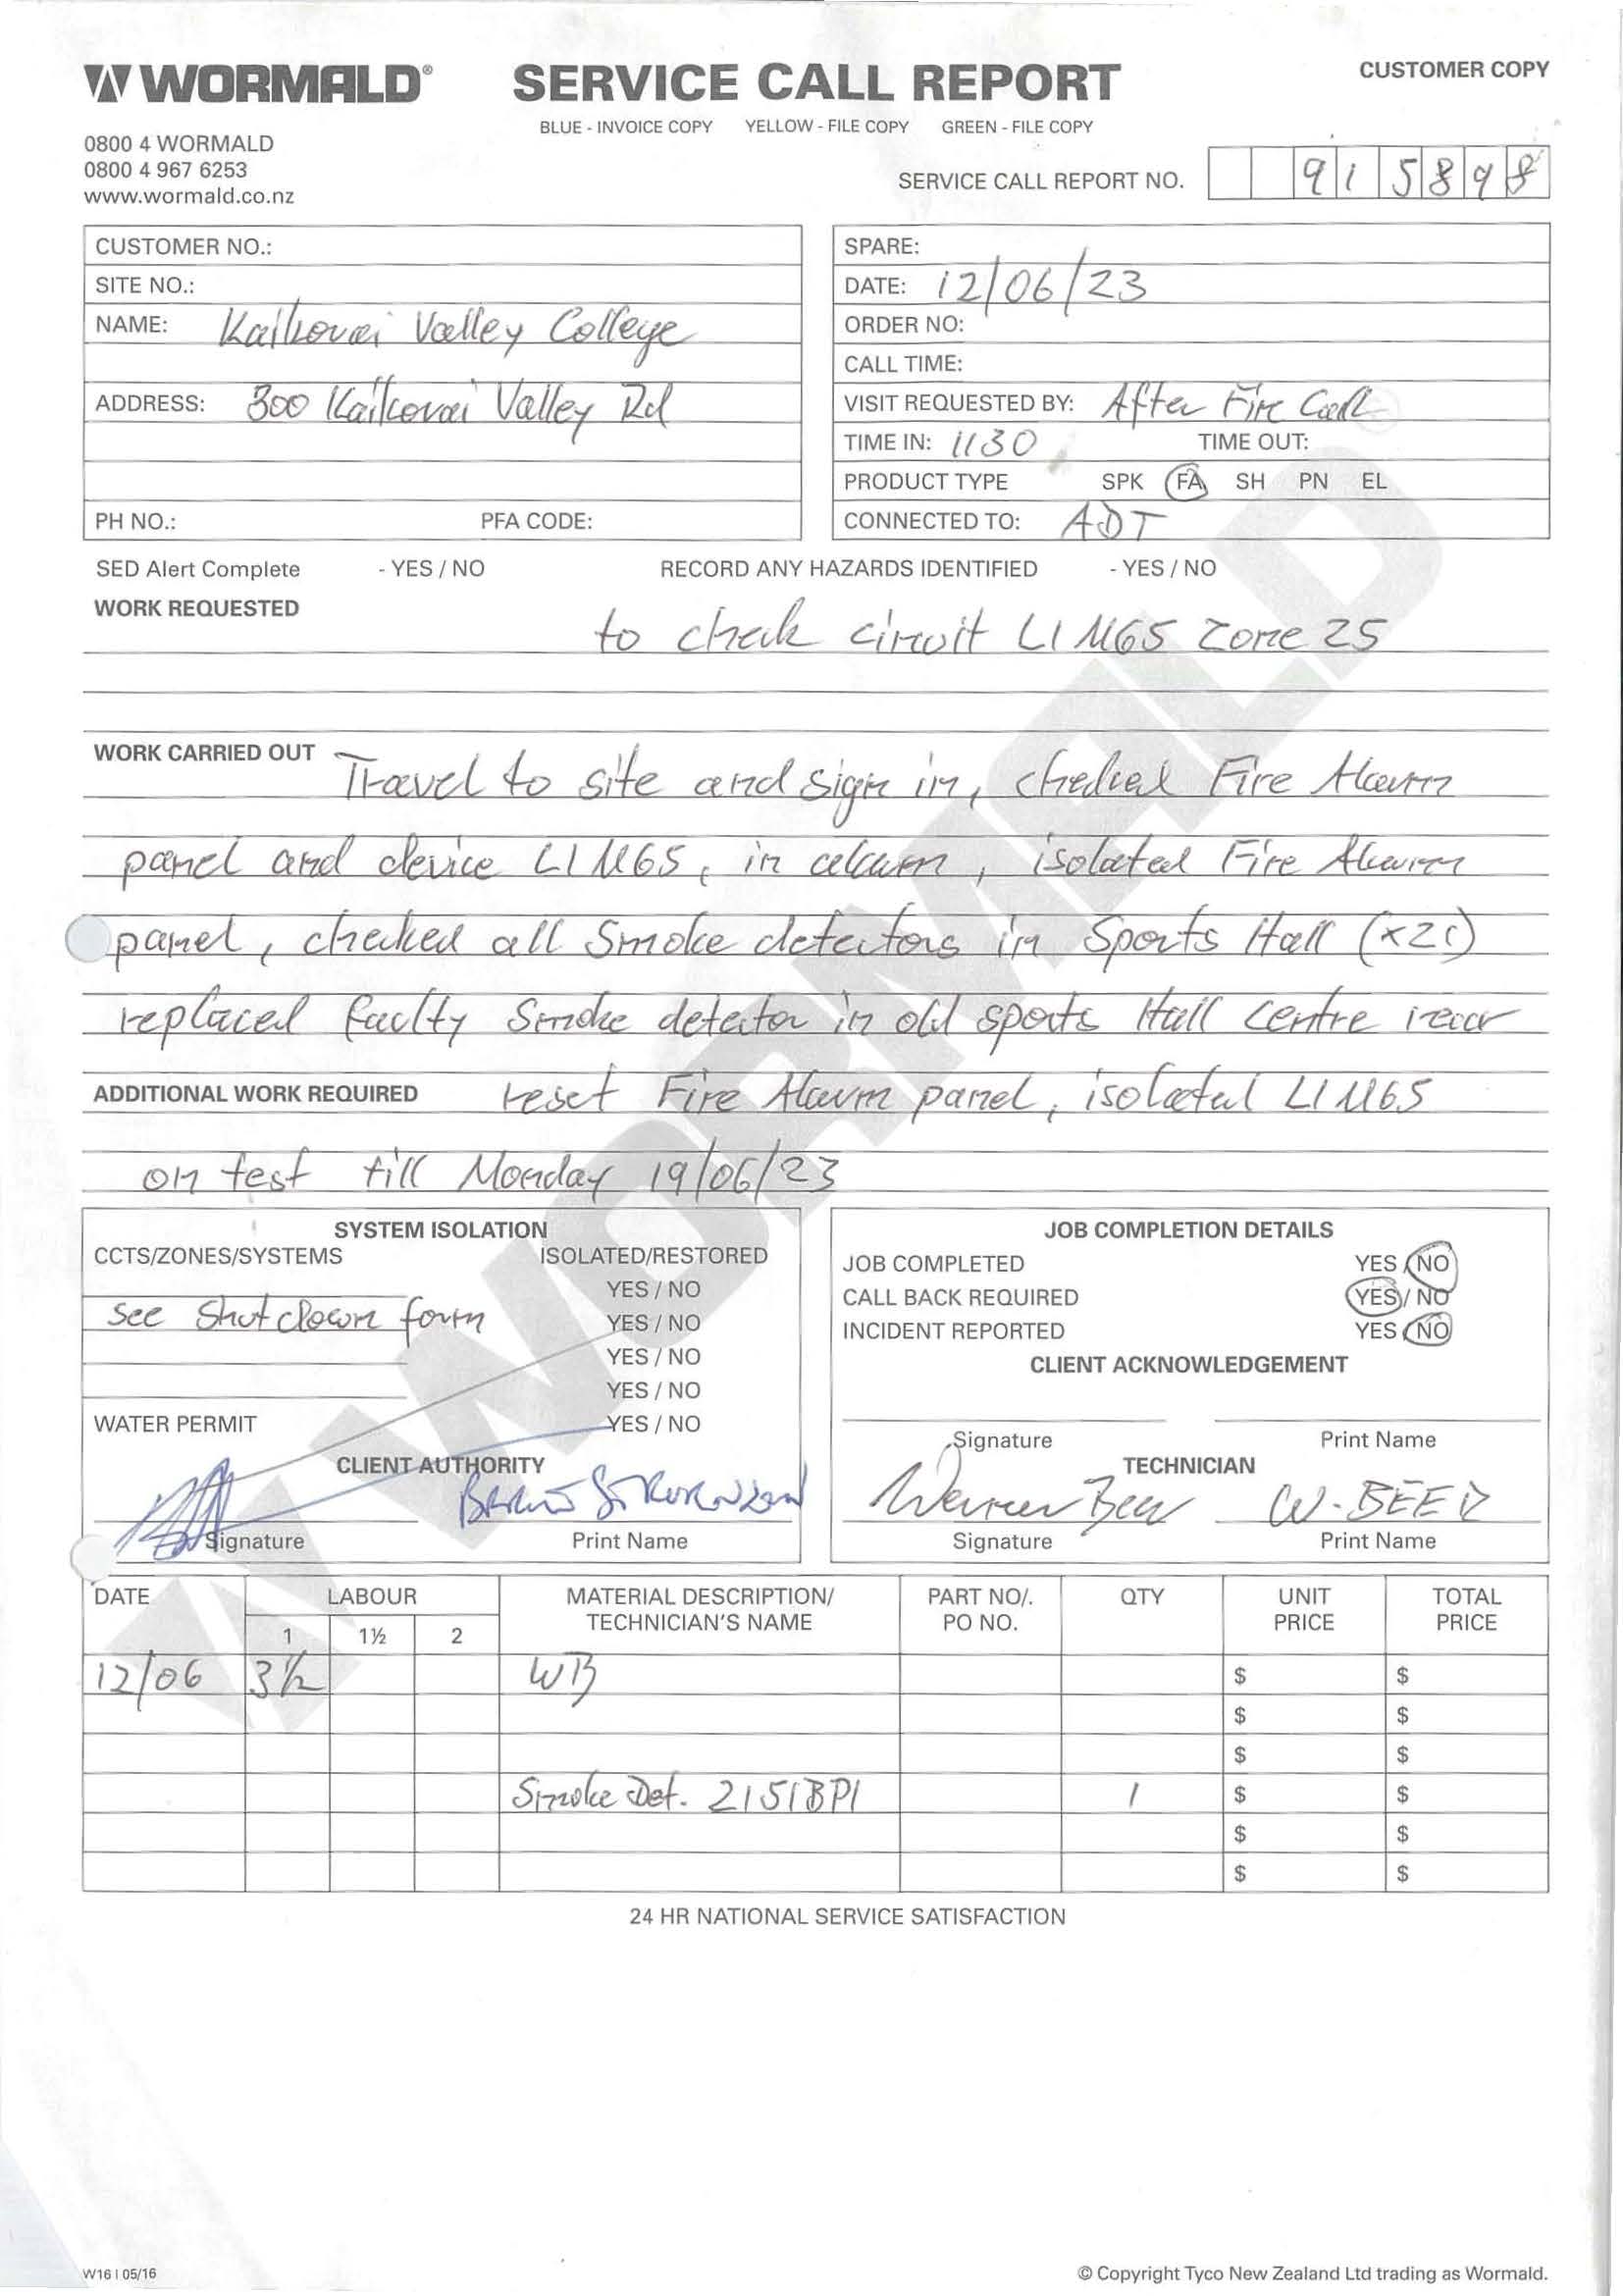 WORMALD® SERVICE CALL REPORT CUSTOMER COPY
BLUE - INVOICE COPY YELLOW - FILE COPY GREEN - FILE COPY
0800 4 WORMALD
0800 4 967 6253
www.wormald.co.nz
SERVICE CALL REPORT NO. 915898
CUSTOMER NO.:
SITE NO.:
NAME: Kaikorai Valley College
ADDRESS: 300 Kaikorai Valley Rd
PH NO.: PFA CODE:
SPARE:
DATE: 12/06/23
ORDER NO:
CALL TIME:
VISIT REQUESTED BY: After Fire Call
TIME IN: 1130 TIME OUT:
PRODUCT TYPE SPK FA SH PN EL
CONNECTED TO: ADT
SED Alert Complete - YES / NO RECORD ANY HAZARDS IDENTIFIED - YES / NO
WORK REQUESTED
to check circuit L1 M65 Zone 25
WORK CARRIED OUT Travel to site and sign in, checked Fire Alarm
panel and device L1 M65, in alarm, isolated Fire Alarm
panel, checked all Smoke detectors in Sports Hall
replaced faulty Smoke detector in old sports Hall centre rear
ADDITIONAL WORK REQUIRED reset Fire Alarm panel, isolated L1 M65
on test till Monday 19/06/23
SYSTEM ISOLATION
CCTS/ZONES/SYSTEMS ISOLATED/RESTORED
YES / NO
see Shutdown form YES / NO
YES / NO
YES / NO
WATER PERMIT YES / NO
CLIENT AUTHORITY
Signature Print Name
JOB COMPLETION DETAILS
JOB COMPLETED YES / NO
CALL BACK REQUIRED YES / NO
INCIDENT REPORTED YES / NO
CLIENT ACKNOWLEDGEMENT
Signature Print Name
TECHNICIAN
Warren Beer W. BEER
Signature Print Name
DATE LABOUR MATERIAL DESCRIPTION/ PART NO/. QTY UNIT TOTAL
TECHNICIAN'S NAME PO NO. PRICE PRICE
1 1½ 2
12/06 3½ WB $ $
$ $
$ $
Smoke Det. 2151BPI 1 $ $
$ $
$ $
24 HR NATIONAL SERVICE SATISFACTION
W16 I 05/16 © Copyright Tyco New Zealand Ltd trading as Wormald.
WORMALD®